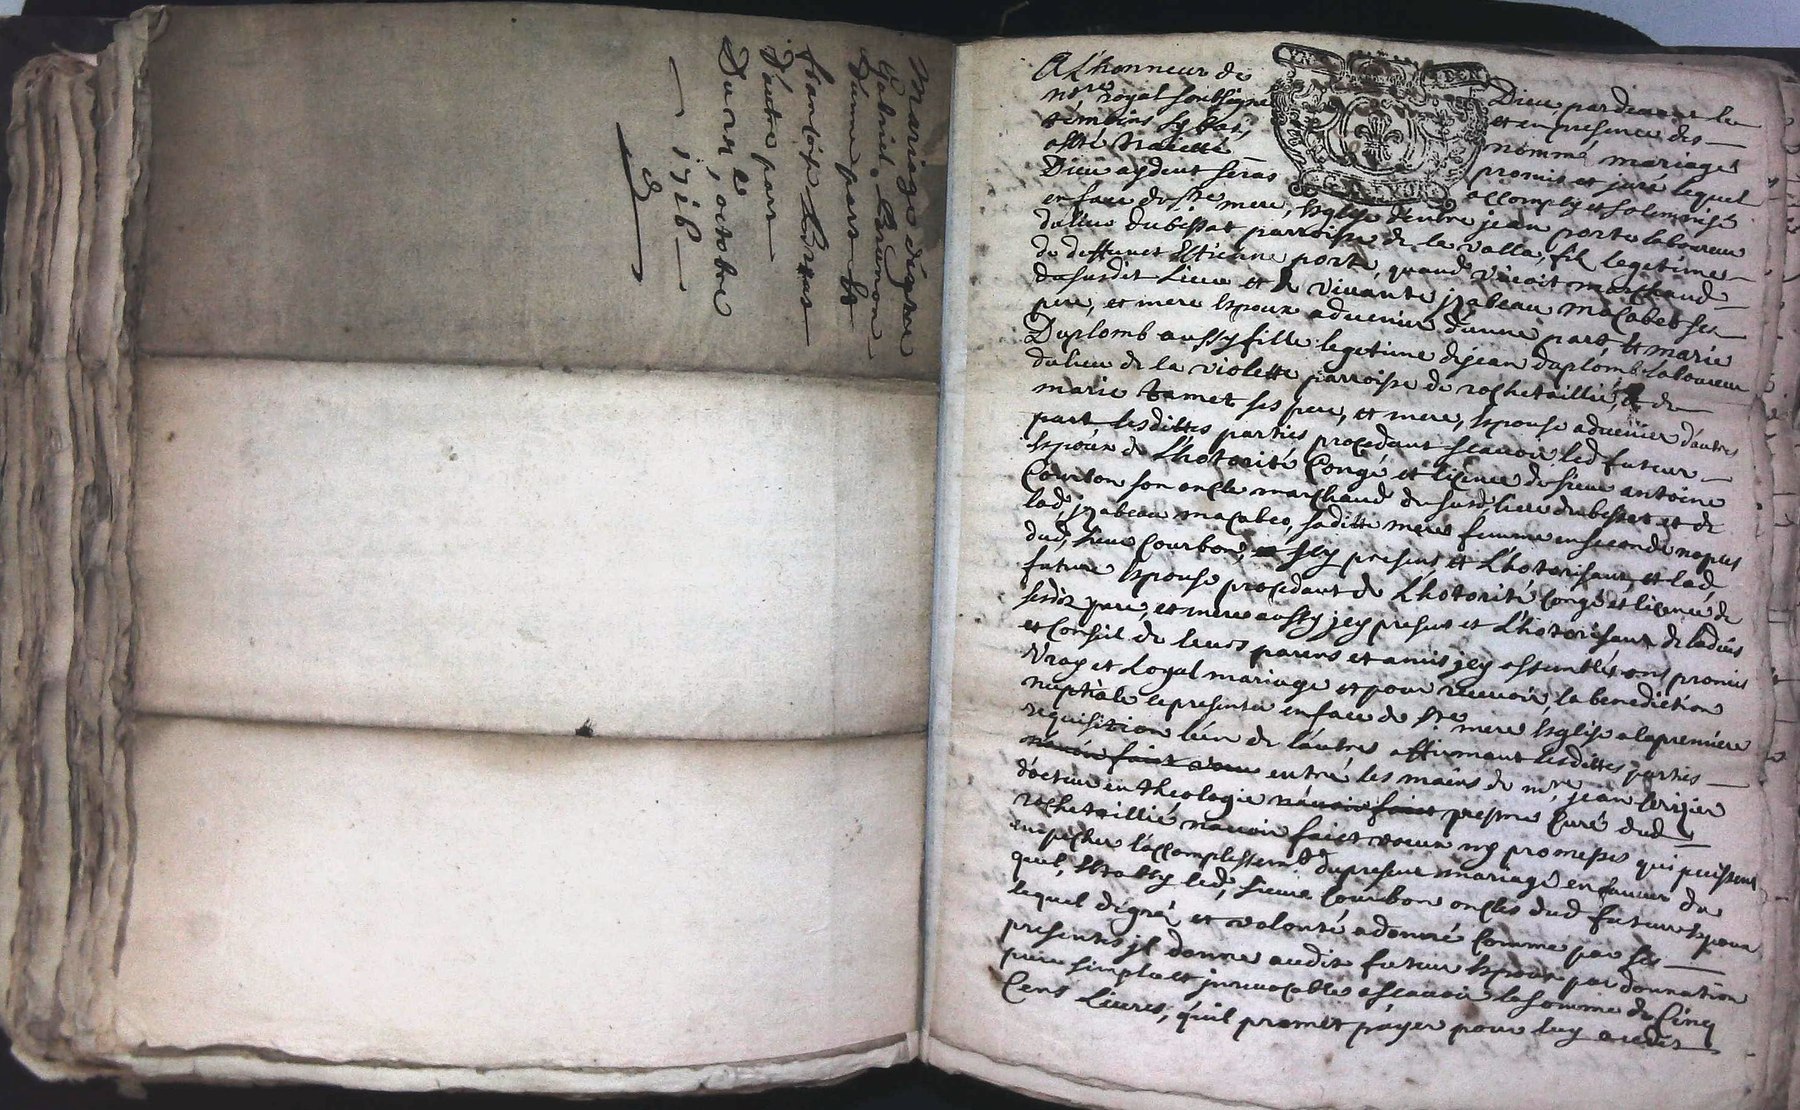 Mariage d'entre
Gabriel
d'une part &
françoise
d'autre part
Du en 8e octobre
1716
A L'honneur de Dieu pardevant le
nore Royal soubsigné et en presence des
témoins sy bas nommé, mariage
asté traitté promis et juré lequel
Dieu aydent seras accomply et solemnisé
en face de Ste mere, Esglise d'entre jean porte laboureur
du lieu du bessat parroisse de la valla, fils legitime
de deffunct Estienne porte, quand vivoit marchand
dususdit Lieu et de vivante jzabeau macabeo ses
pere, et mere Espoux advenir d'une part & marie
Duplomb aussy fille legitime dejean duplomb laboureur
du lieu de la violette parroisse de rochetaillié, & de
marie tamet ses pere, et mere, Espouse advenir d'autre
part lesdittes parties procedant scavoir led futeur
Espoux de L'hotorité Congé et licence de sieur antoine
Courbon son oncle marchand du susd lieu du bessat et de
lad, jzabeau macabeo, saditte mere femme en seconde nopces
dud, sieur Courbon, jcy present et L'hotorisant, et lad
future Espouse procedant de L'hotorité Congé et licence de
sesdts pere, et mere aussy jcy presens et L'hotorisant de ladvis
et Conseil de leurs parens et amis jcy assemblés ont promis
vray et Loyal mariage et pour recevoir la benediction
nuptiale se presenter en face de Ste mere Esglise a la premiere
requisition l'un de l'autre affirmant lesdittes parties
navoir faict voeu entre les mains de mre jean Cerizier
docteur en theologie navoir faict prestre Curé dud
rochetaillié navoir faict voeux ny promesses qui puissent
empecher laccomplissemt du present mariage en faveur du
quel, Estably led, sieur Courbon oncles dud futeur Espoux
lequel de gré et volonté a donné Comme par ses
presentes jl donne audit futeur Espoux par donnation
pure simple et jrrevocable ascavoir la somme de Cinq
Cens Livres, qu'il promet payer pour luy audit